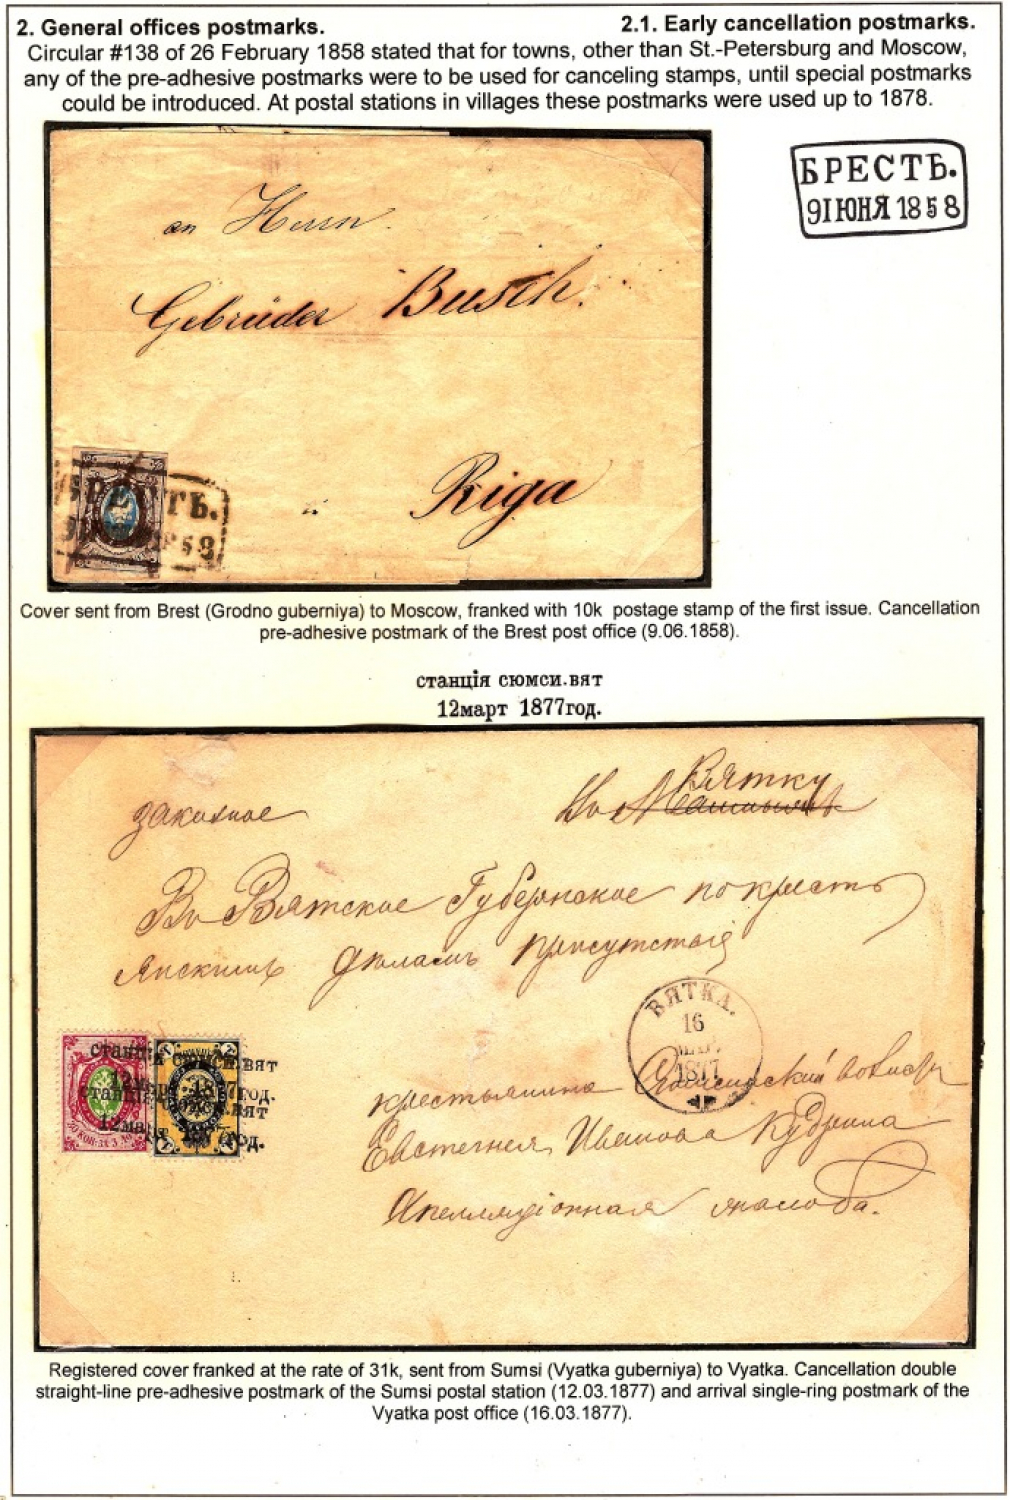 2. General offices postmarks. 2.1. Early cancellation postmarks.
Circular #138 of 26 February 1858 stated that for towns, other than St.-Petersburg and Moscow,
any of the pre-adhesive postmarks were to be used for canceling stamps, until special postmarks
could be introduced. At postal stations in villages these postmarks were used up to 1878.
БРЕСТЬ.
9 IЮНЯ 1858
an Herrn.
Gebrüder Busch.
Riga
БРЕСТЬ.
Cover sent from Brest (Grodno guberniya) to Moscow, franked with 10k postage stamp of the first issue. Cancellation
pre-adhesive postmark of the Brest post office (9.06.1858).
станція сюмси.вят
12март 1877год.
Вятку
заказное
Во Вятское Губернское по кресть
янскимъ дѣламъ присутствія
ВЯТКА.
16
МАР.
1877
станція сюмси.вят
12март 1877год.
станція сюмси.вят
12март 1877год.
крестьянина
Евстегнея Иванова Кудрина
Апелляціонная жалоба.
Registered cover franked at the rate of 31k, sent from Sumsi (Vyatka guberniya) to Vyatka. Cancellation double
straight-line pre-adhesive postmark of the Sumsi postal station (12.03.1877) and arrival single-ring postmark of the
Vyatka post office (16.03.1877).